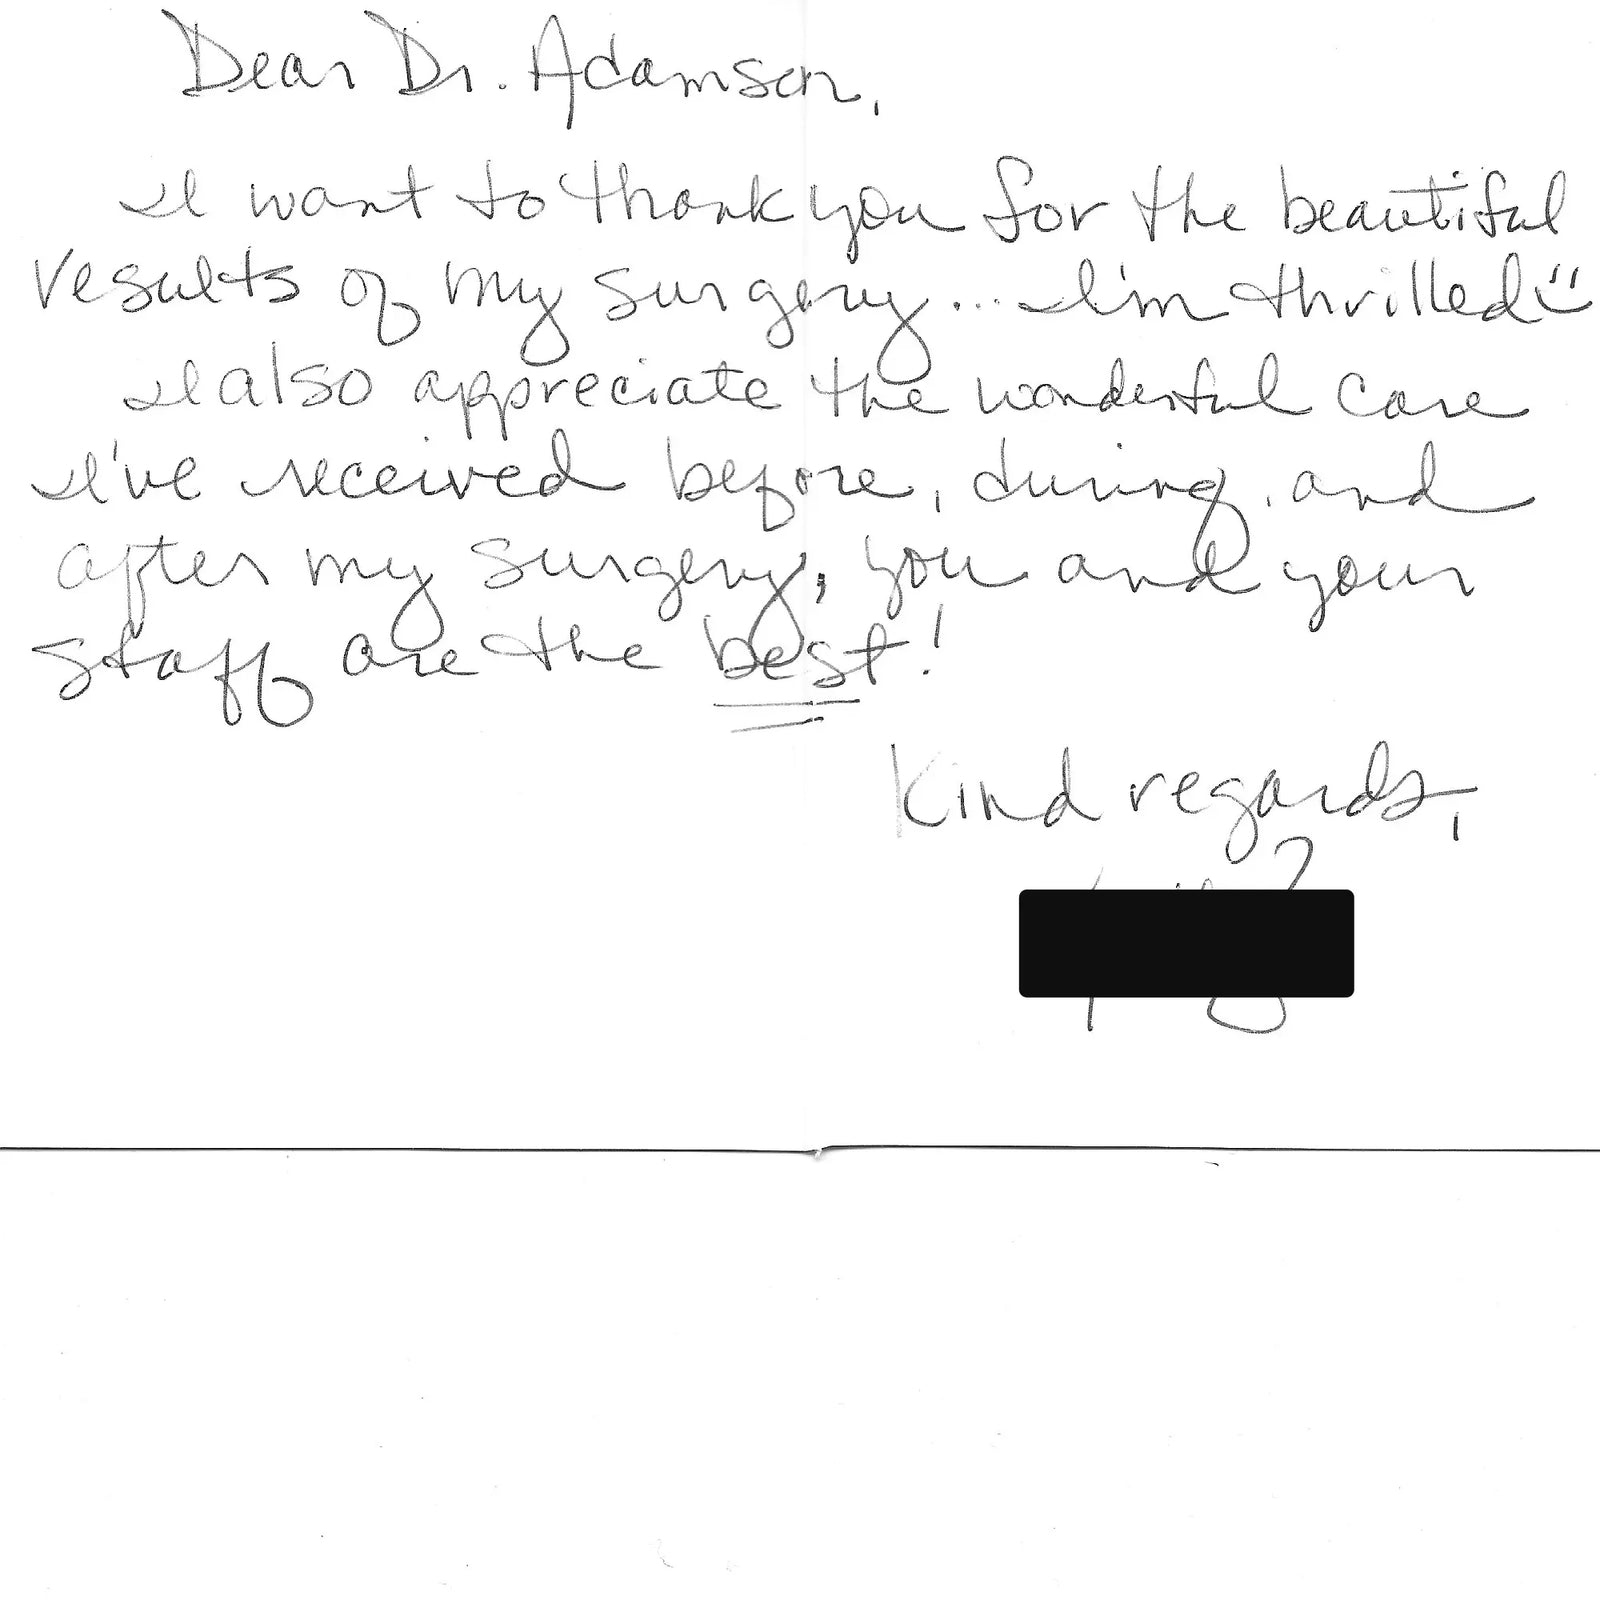 Dear Dr. Adamson,
I want to thank you for the beautiful
results of my surgery... I'm thrilled
I also appreciate the wonderful care
I've received before, during, and
after my surgery; you and your
staff are the best!
Kind regards,